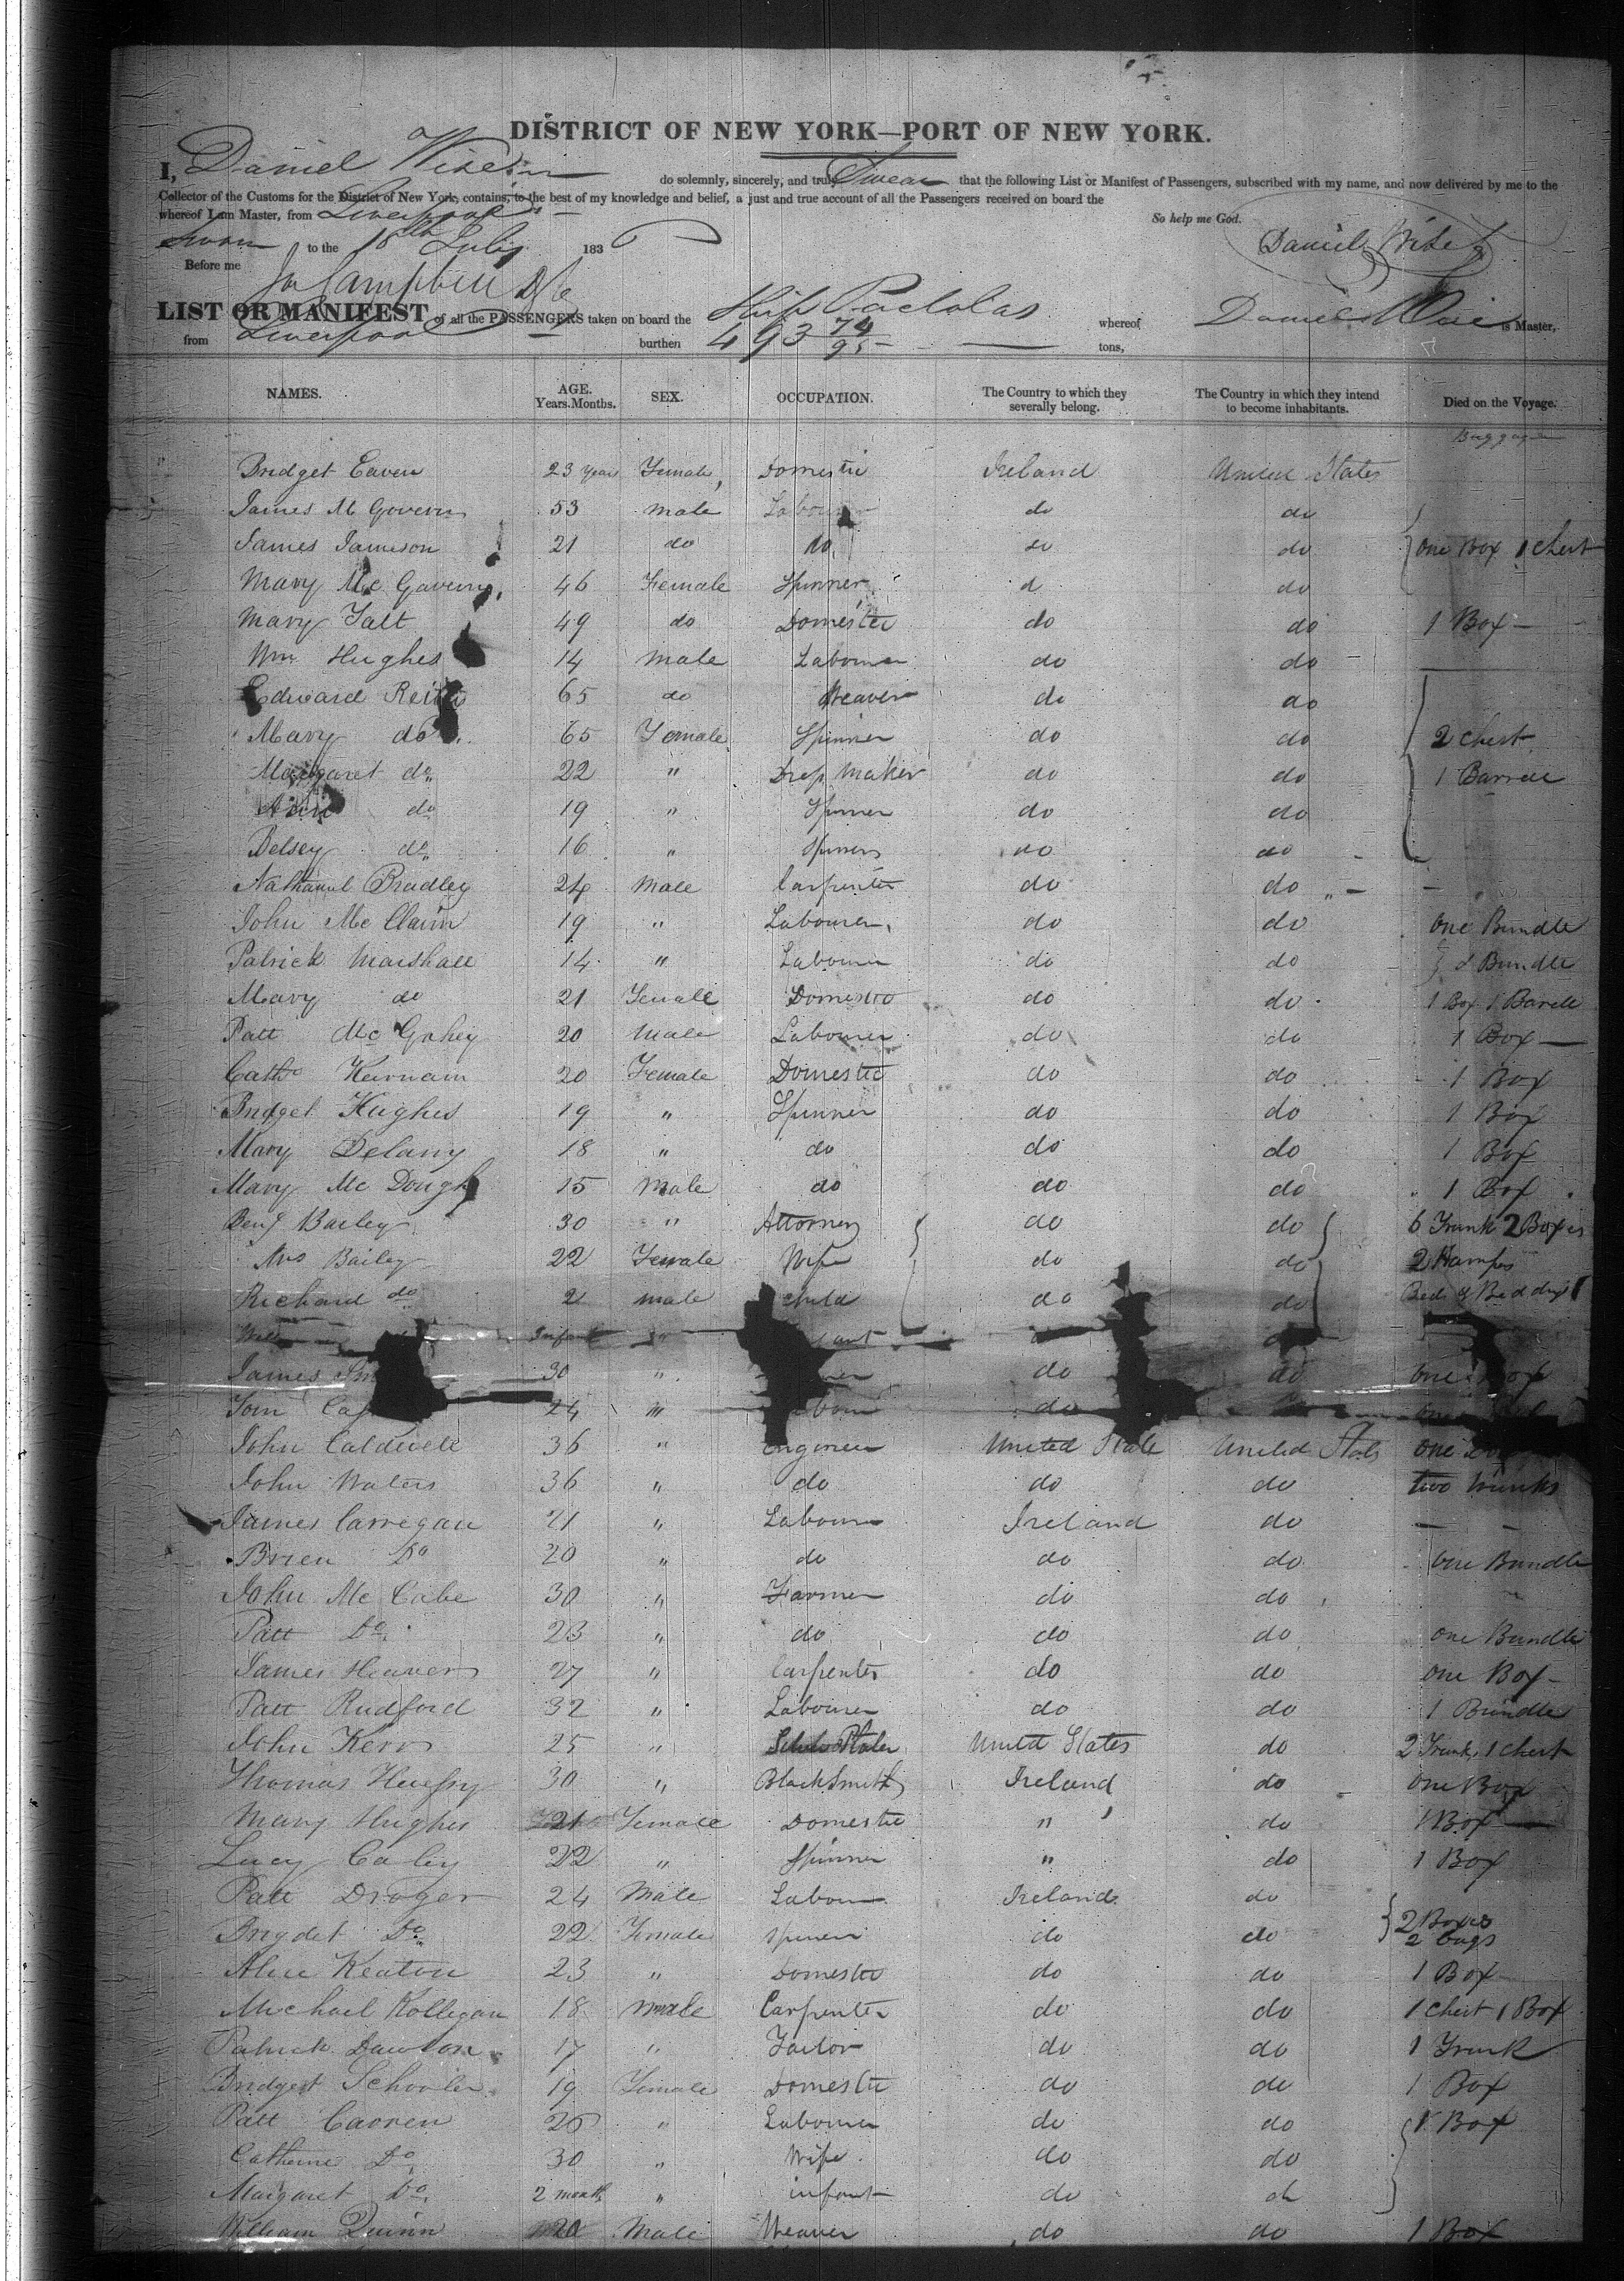 DISTRICT OF NEW YORK—PORT OF NEW YORK.
I, Daniel do solemnly, sincerely, and truly Swear that the following List or Manifest of Passengers, subscribed with my name, and now delivered by me to the
Collector of the Customs for the District of New York, contains, to the best of my knowledge and belief, a just and true account of all the Passengers received on board the
whereof I am Master, from Liverpool
So help me God.
Sworn to the 18th July 183
Daniel Wise
Before me
Campbell
LIST OR MANIFEST of all the PASSENGERS taken on board the Ship Pactolus whereof Daniel is Master,
from Liverpool burthen 493 74/95 tons,
NAMES. AGE. Years. Months. SEX. OCCUPATION. The Country to which they severally belong. The Country in which they intend to become inhabitants. Died on the Voyage.
Baggage
Bridget Eaven 23 year Female Domestic Ireland United States
James Mc Govern 53 male Labourer do do
James Jameson 21 do do do do one Box 1 chest
Mary Mc Govern 46 Female Spinner d do
Mary Talt 49 do Domestic do do 1 Box
Wm Hughes 14 male Labourer do do
Edward 65 do Weaver do do
Mary do 65 Female Spinner do do 2 chest
Margaret do 22 " Dress maker do do 1 Barrell
Ann do 19 " Spinner do do
Betsey do 16 " Spinner do do
Nathanul Bradley 24 Male Carpenter do do
John Mc Claim 19 " Labourer do do one Bundle
Patrick Marshall 14 " Labourer do do Bundle
Mary do 21 Female Domestic do do 1 Box 1 Barell
Patt Mc Gahey 20 Male Labourer do do 1 Box
Cathe Kernam 20 Female Domestic do do 1 Box
Bridget Hughes 19 " Spinner do do 1 Box
Mary Delany 18 " do do do 1 Box
Mary Mc Dough 15 Male do do do 1 Box
Benj Bailey 30 " Attorney do do 6 Trunk 2 Boxes
Mrs Bailey 22 Female Wife do do 2 Hampers
Richard do 2 male child do do Beds & Bedding
Infant "
James 30 " do do one Box
Tom 24 " do
John Caldwell 36 " Engineer United State United States one
John Waters 36 " do do do two trunks
James Carregan 21 " Labourer Ireland do
Brien Do 20 " do do do one Bundle
John Mc Cabe 30 " Farmer do do
Patt Do 23 " do do do one Bundle
James Heaven 27 " Carpenter do do one Box
Patt Rudford 32 " Labourer do do 1 Bundle
John Kerr 25 " United States do 2 Trunks 1 chest
Thomas 30 " BlackSmith Ireland do one Box
Mary Hughes 21 Female Domestic " do 1 Box
Lucy Caley 22 " Spinner " do 1 Box
Patt Droger 24 Male Labour Ireland do
Brydet Do 22 Female Spiner do do 2 Boxes 2 bags
Alice Keaton 23 " Domestic do do 1 Box
Michael Kolligan 18 male Carpenter do do 1 chest 1 Box
Patrick Dawson 17 " Tailor do do 1 Trunk
Bridget Schooler 19 Female Domestic do do 1 Box
Patt Carren 26 " Labourer do do 1 Box
Catherine Do 30 " Wife do do
Margaret Do 2 month " infant do do
William Quinn 20 Male Weaver do do 1 Box